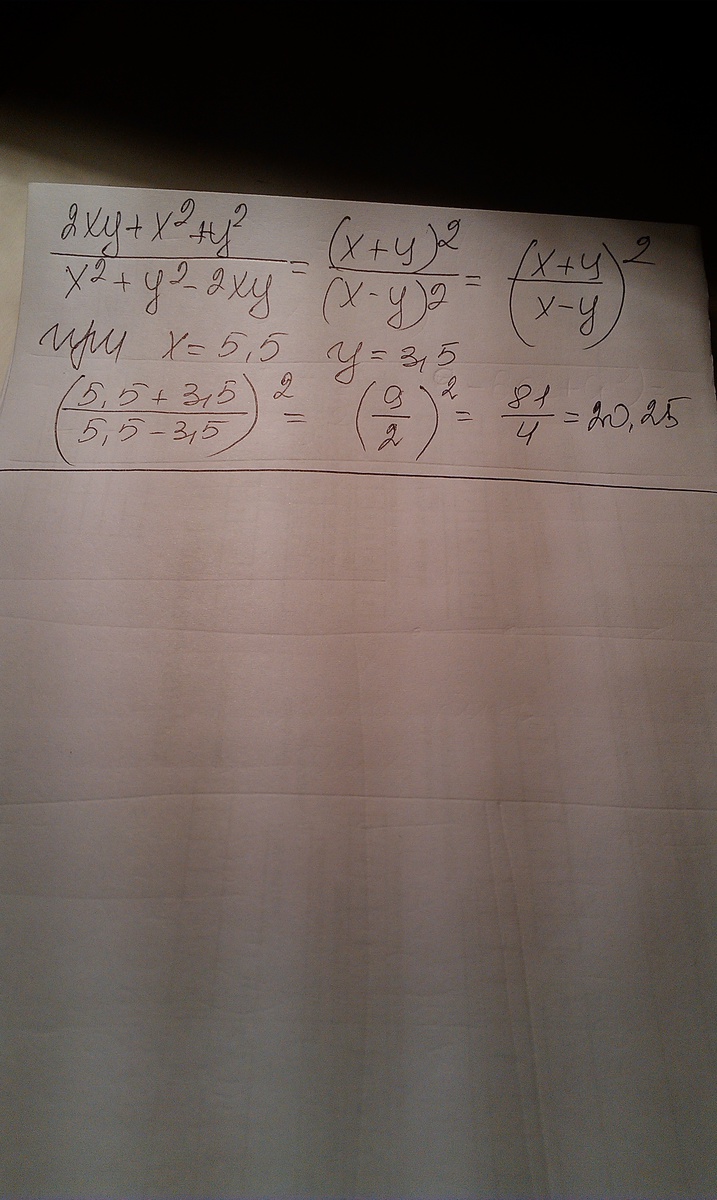 (2xy+x²+y²)/(x²+y²-2xy) = (x+y)²/(x-y)2 = ((x+y)/(x-y))²
при x=5,5 y=3,5
((5,5+3,5)/(5,5-3,5))² = (9/2)² = 81/4 = 20,25